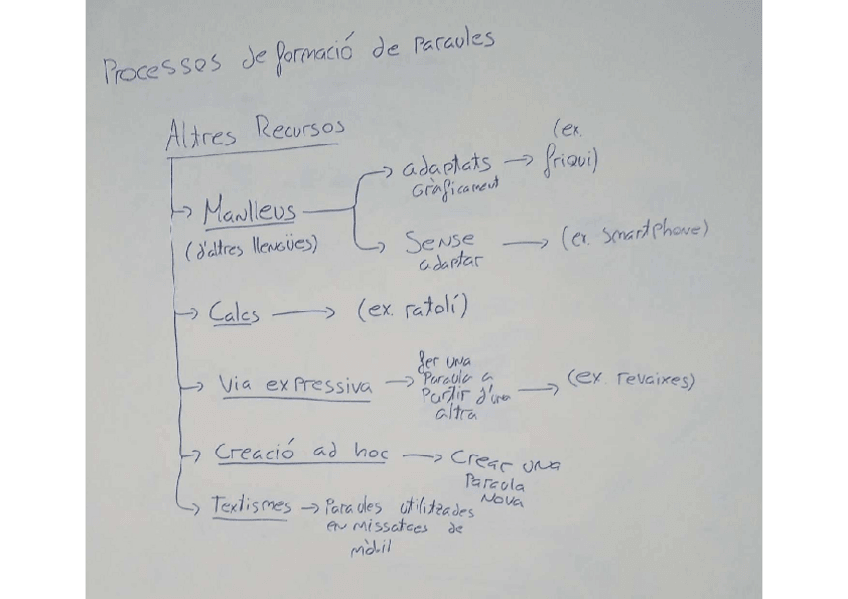 Processos de formació de paraules
Altres Recursos
Manlleus
(d'altres llengües)
adaptats
gràficament
(ex.
friqui)
Sense
adaptar
(ex. smartphone)
Calcs
(ex. ratolí)
Via expressiva
fer una
Paraula a
Partir d'una
altra
(ex. revaixes)
Creació ad hoc
Crear una
Paraula
Nova
Textismes
Paraules utilitzades
en missatges de
mòbil